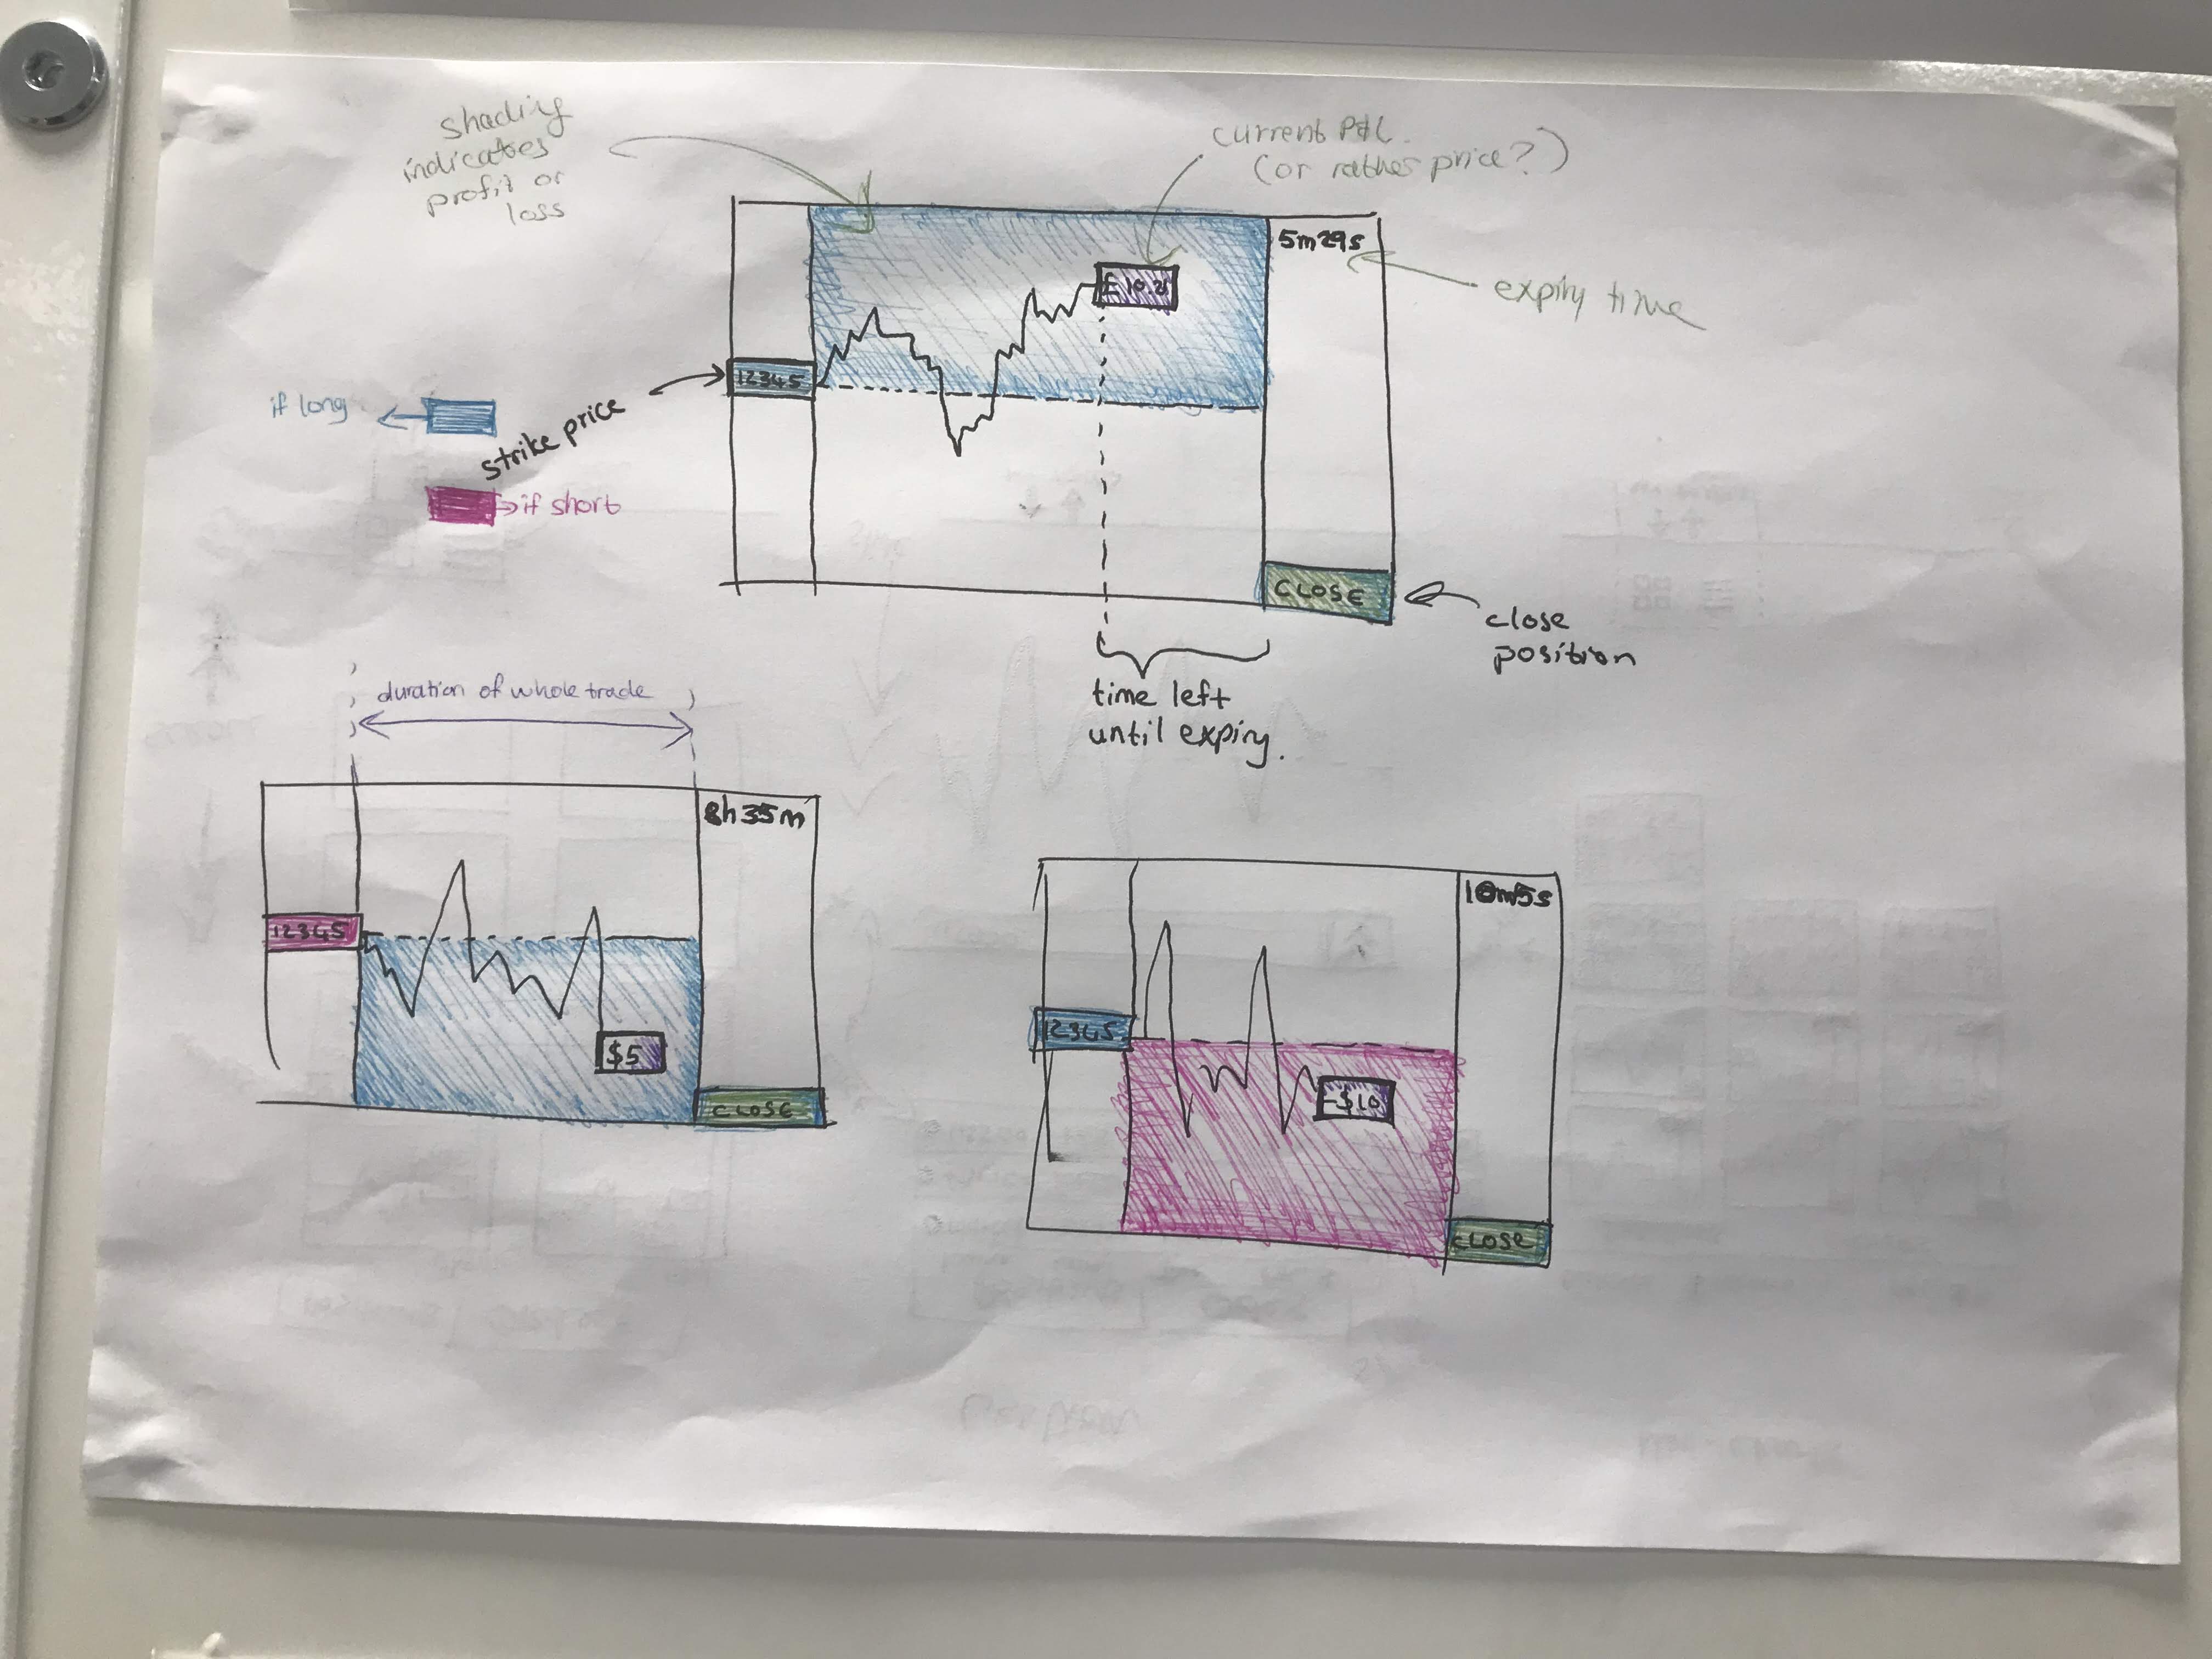 shading
indicates
profit or
loss
current P&L.
(or rather price?)
5m29s
expiry time
£10.21
12345
if long
strike price
if short
CLOSE
close
position
time left
until expiry.
duration of whole trade
8h35m
12345
$5
CLOSE
10m5s
12345
-$10
CLOSE